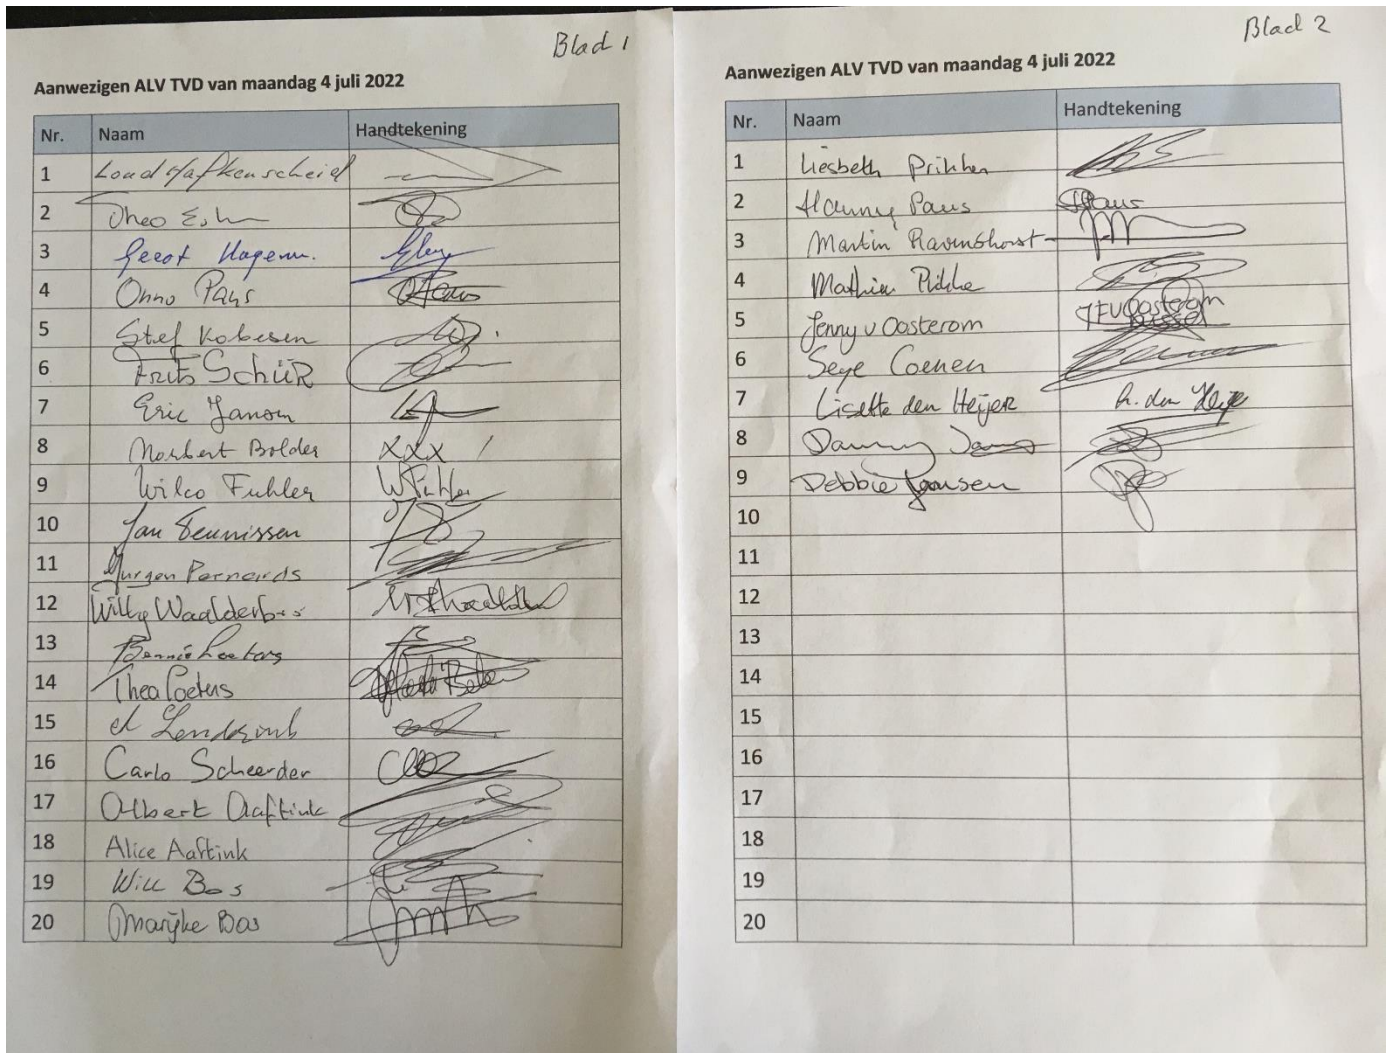 Blad 1
Aanwezigen ALV TVD van maandag 4 juli 2022
Nr. Naam Handtekening
1 Hafkenscheid
2 Theo
3 Geert
4 Onno Paus
5 Stef Kobesen
6 Frits SchüR
7 Eric Jansen
8 Norbert Bolder XXX
9 Wilco Fuhler W Fuhler
10 Jan Teunissen
11 Jurgen Bernards
12 Willy Waalderbos
13 Bennie
14 Thea Peters
15
16 Carlo Scheerder
17 Albert Aaftink
18 Alice Aaftink
19 Will Bos
20 Marijke Bos
Blad 2
Aanwezigen ALV TVD van maandag 4 juli 2022
Nr. Naam Handtekening
1 Liesbeth Prikken
2 Hanny Paus HPaus
3 Martin Ravenshorst
4 Mathieu
5 Jenny v Oosterom JFVOosterom
6 Seye Coenen
7 Lisette den Heijer
8 Danny
9 Debbie Jansen
10
11
12
13
14
15
16
17
18
19
20